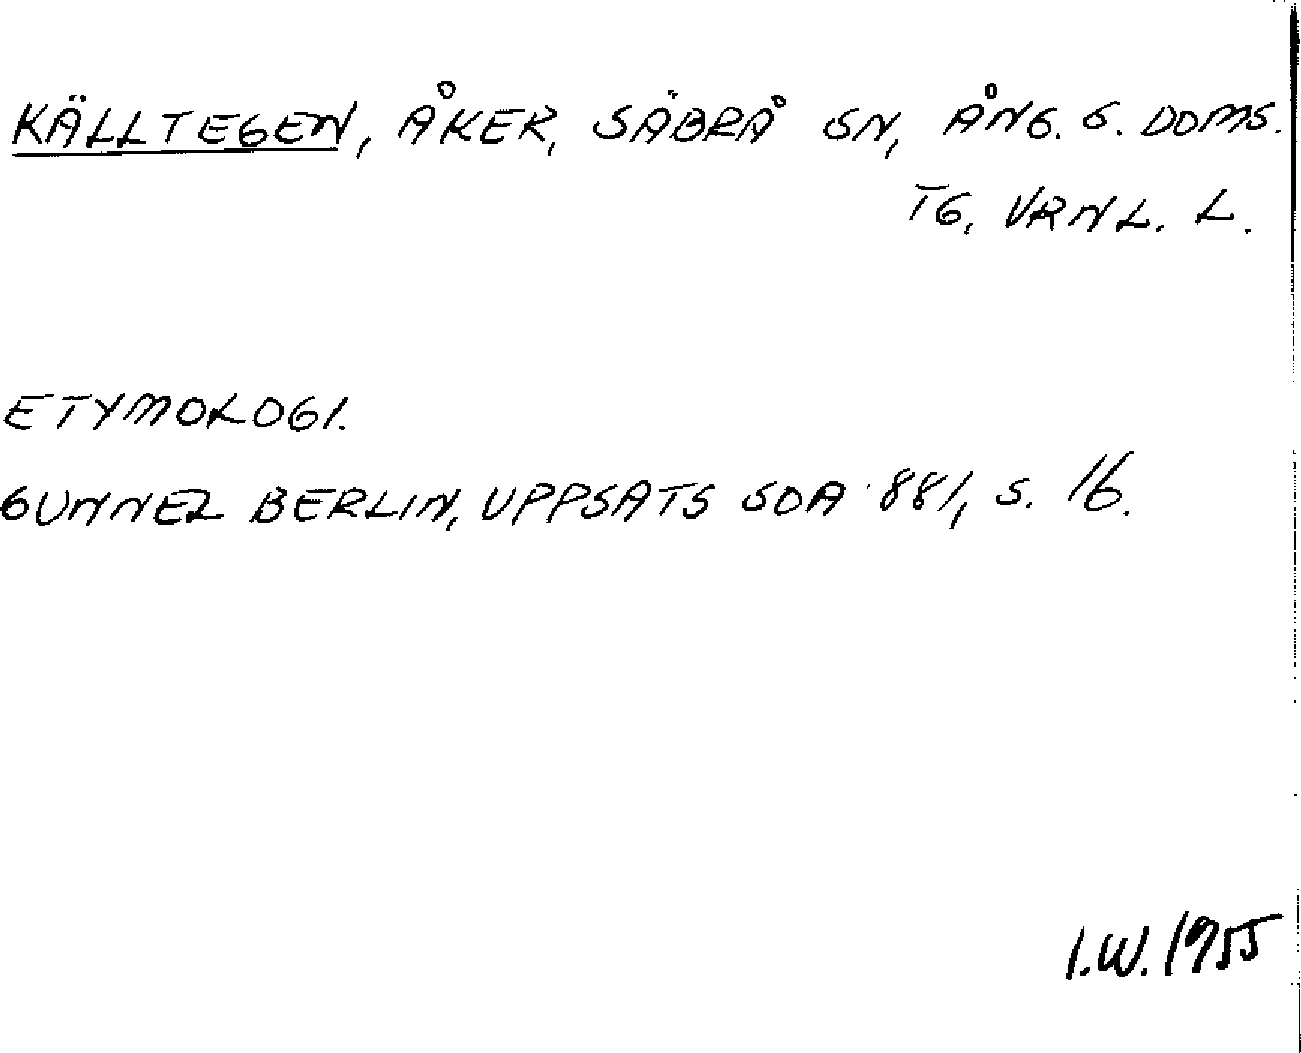 KÄLLTEGEN, ÅKER, SÄBRÅ SN, ÅNG. S. DOMS.
TG, VRNL. L.
ETYMOLOGI.
GUNNEL BERLIN, UPPSATS SOA 881, S. 16.
I.W. 1955